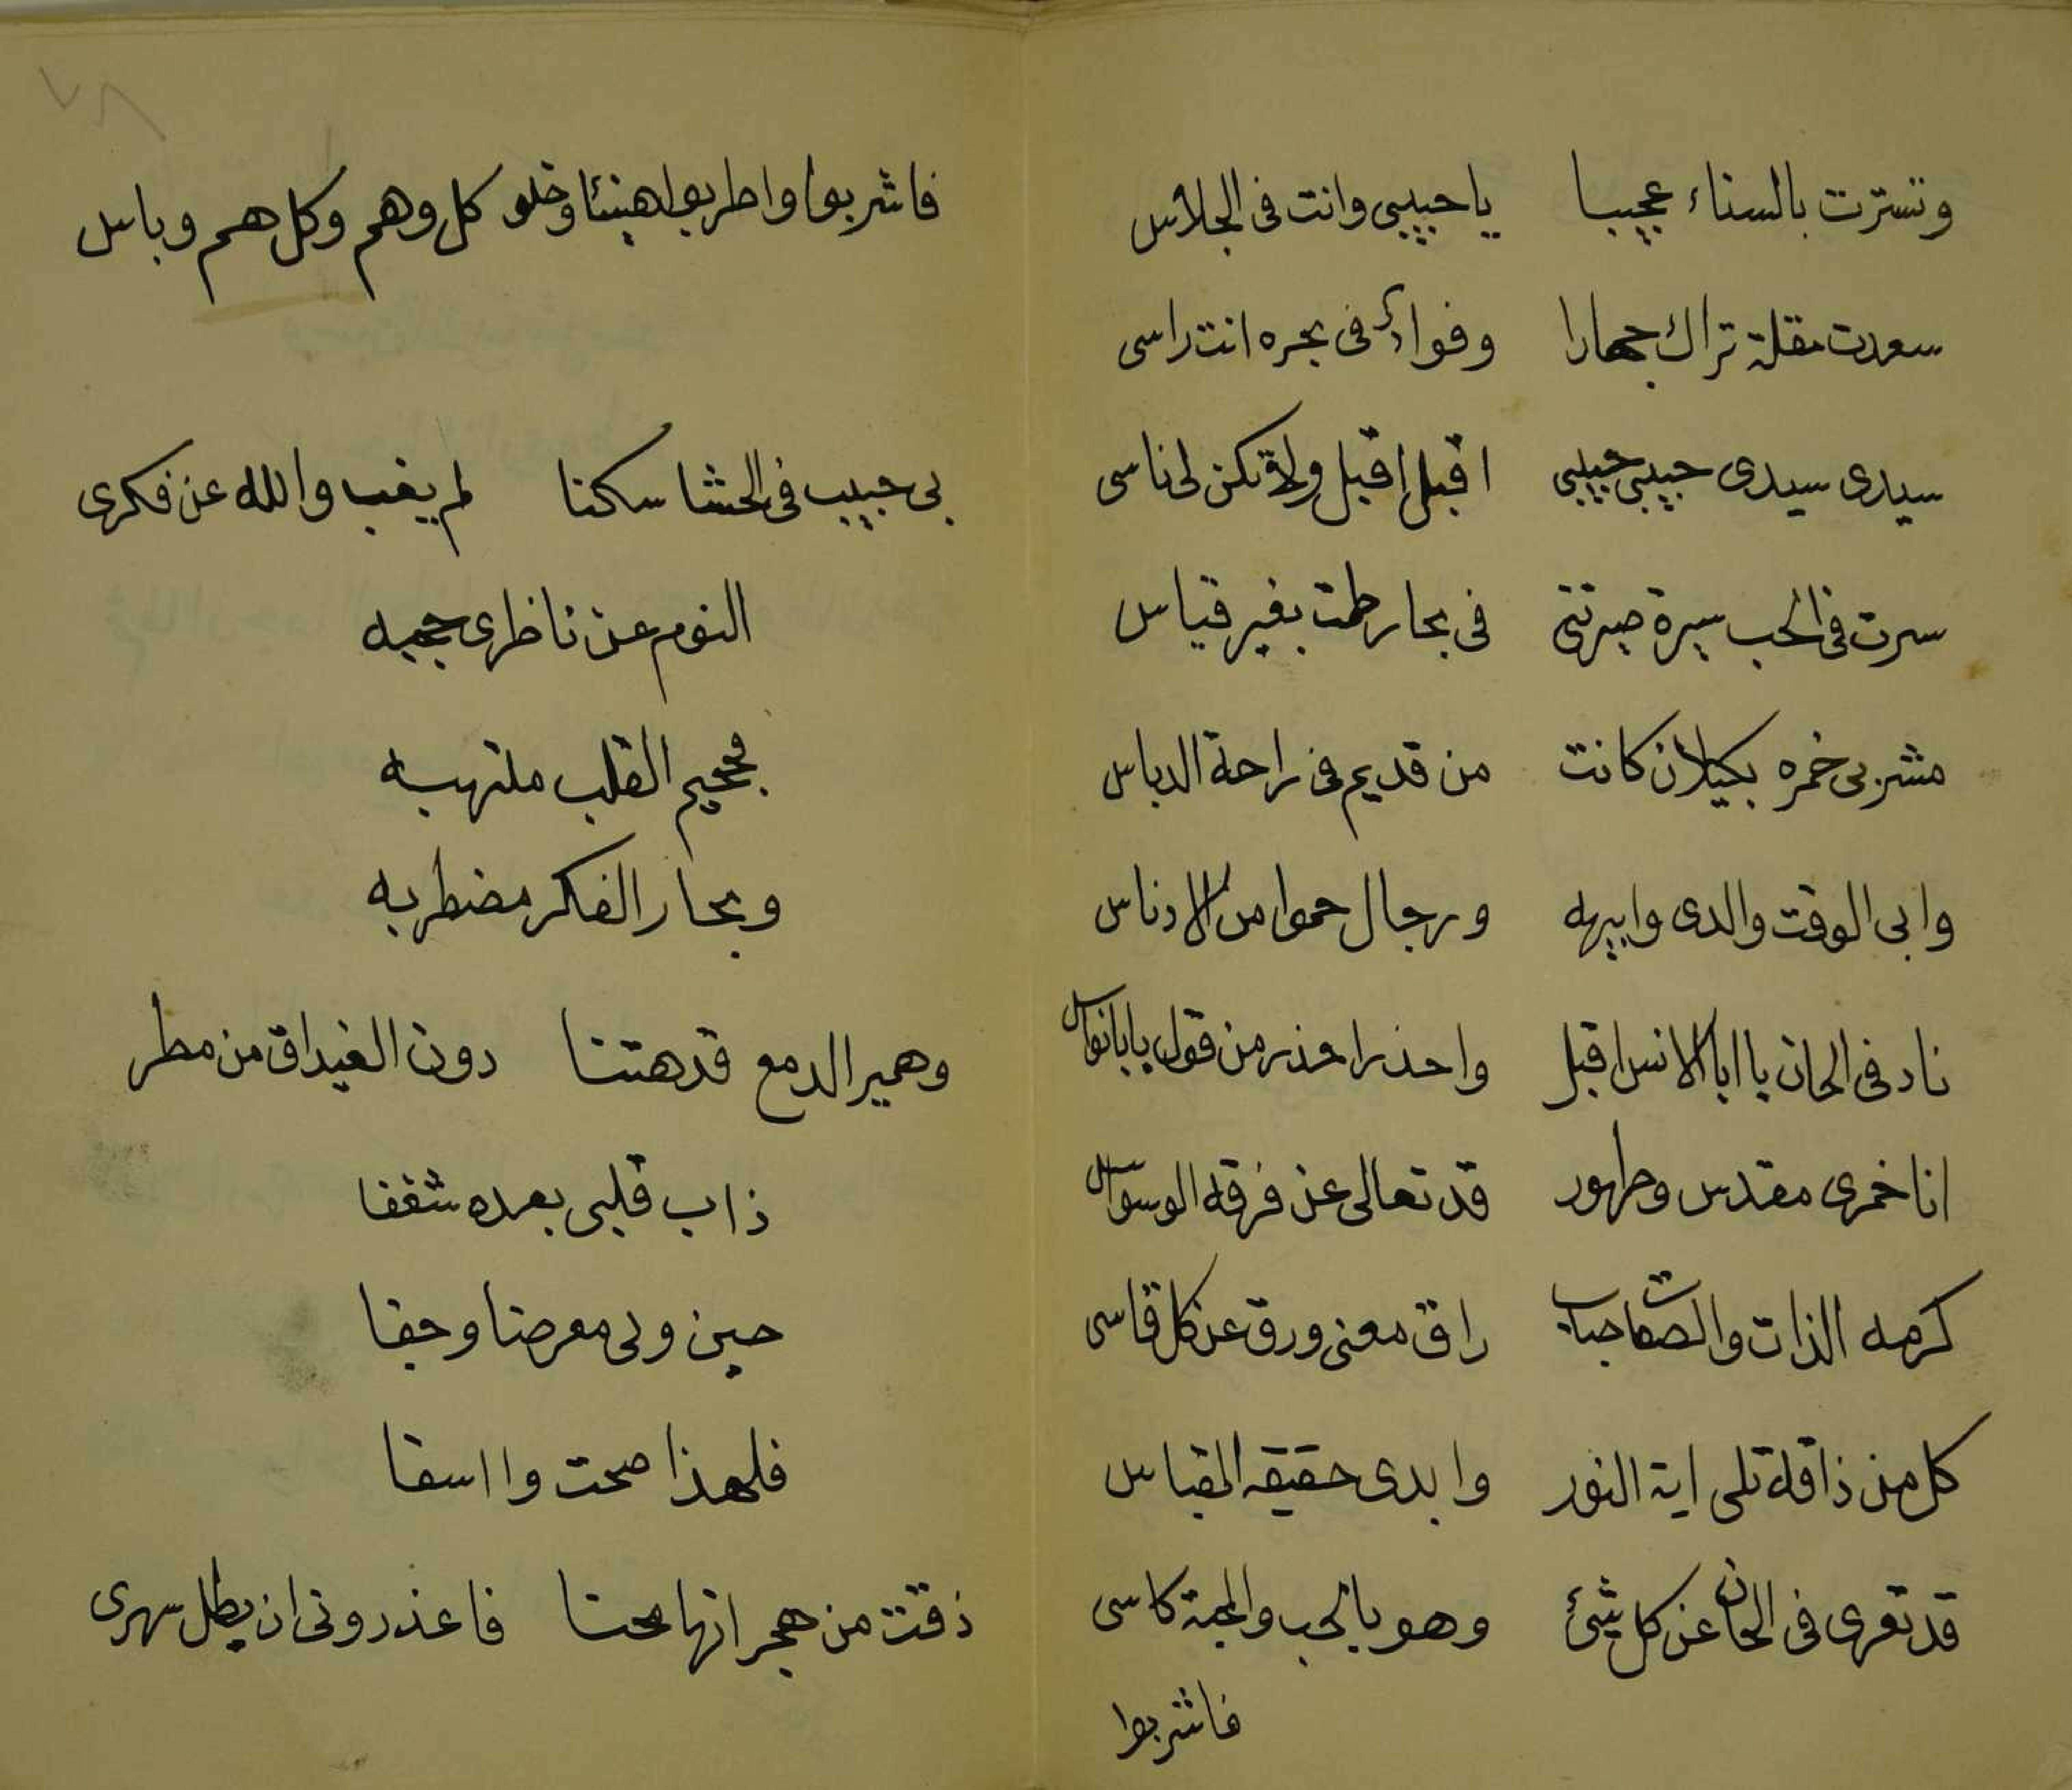 وتسترت بالسناء عجيبا يا حبيبي وانت فى الجلاس
سعدت مقلة تراك جهارا وفواد فى بحره انت راسى
سيدى سيدى حبيبي حبيبي اقبل اقبل ولا تكن لى ناسى
سرت فى الحب سيرة صيرتنى فى بحار طمت بغير قياس
مشربى خمره بكيلان كانت من قديم فى راحة الدباس
وابى الوقت والدى وابيهه ورجال حموا من الادناس
ناد فى الحان يا ابا الانس اقبل واحذر احذر من قول يابانواس
انا خمرى مقدس وطهور قد تعالى عن فرقه الوسواس
كرمه الذات والصفات راق معنى ورق عن كل قاسى
كل من ذاقه تلى اية النور وابدى حقيقه المقباس
قد تعرى فى الحان عن كل شئ وهو بالحب والمحبة كاسى
فاشربوا
٢٧
فاشربوا واطربوا هنيئا وخلو كل وهم وكل هم وباس
بى حبيب فى الحشا سكنا لم يغب والله عن فكرى
النوم عن ناظرى حجبه
فجحيم القلب ملتهبه
وبحار الفكر مضطربه
وهمير الدمع قد هتنا دون الغيداق من مطر
ذاب قلبى بعده شغفا
حين ولى معرضا وجفا
فلهذا صحت وا اسفا
ذقت من هجرانها محنا فاعذرونى ان يطل سهرى